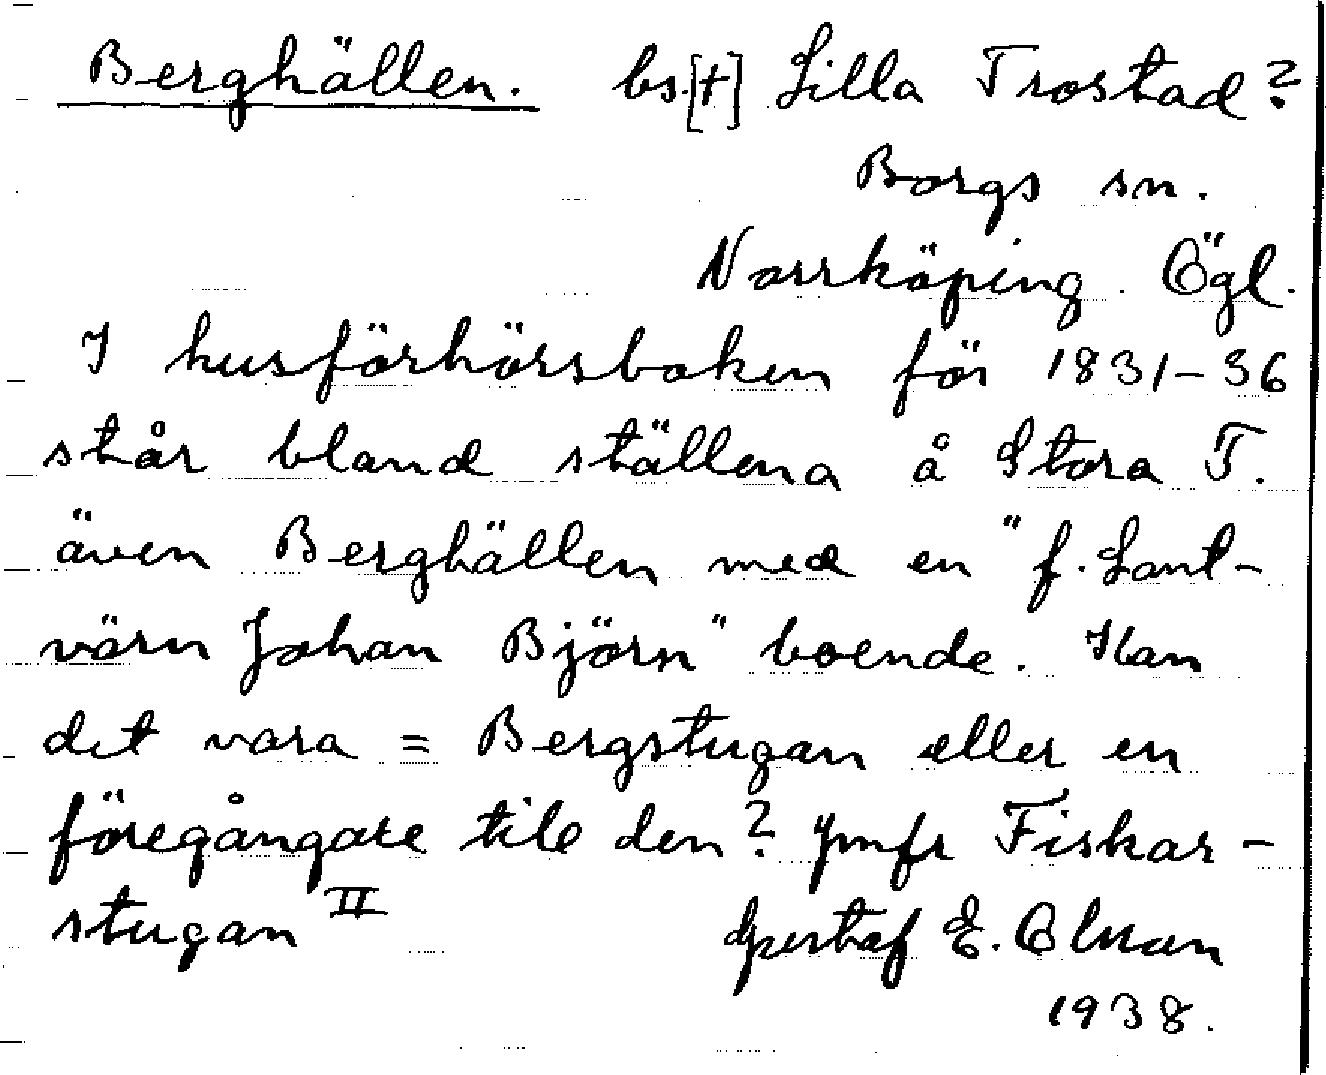 Berghällen. bs.[†] Lilla Trostad?
Borgs sn.
Norrköping. Ögl.
I husförhörsboken för 1831-36
står bland ställena å Stora T.
även Berghällen med en "f. Lant-
värn Johan Björn" boende. Kan
det vara = Bergstugan eller en
föregångare till den? Jmfr Fiskar-
stugan II
Gustaf E. Olman
1938.